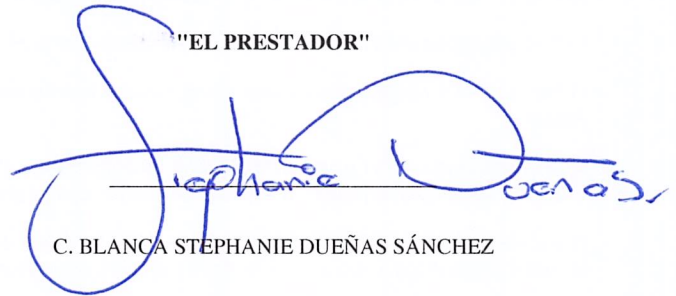 "EL PRESTADOR"
Stephanie Dueñas S.
C. BLANCA STEPHANIE DUEÑAS SÁNCHEZ